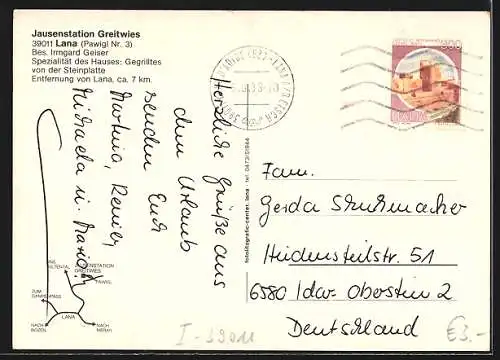 Jausenstation Greitwies
39011 Lana (Pawigl Nr. 3)
Bes. Irmgard Geiser
Spezialität des Hauses: Gegrilltes
von der Steinplatte
Entfernung von Lana, ca. 7 km.
Herzliche Grüße aus
dem Urlaub
senden Euch
Martina, Reiner,
Michaela u. Marion
fotolitografic-center, lana - tel. 0473/51866
ITALIA
Fam.
Gerda Schuhmacher
Heidensteilstr. 51
6580 Idar-Oberstein 2
Deutschland
JAUSENSTATION
GREITWIES
PAWIGL
ZUM
LANA
NACH
BOZEN
NACH
MERAN
I-39011
€3.-